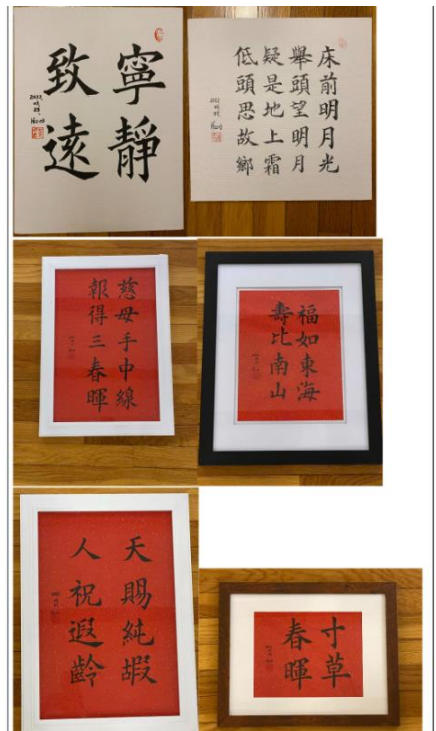 寧靜
致遠
床前明月光
舉頭望明月
疑是地上霜
低頭思故鄉
慈母手中線
報得三春暉
福如東海
壽比南山
天賜純嘏
人祝遐齡
寸草
春暉